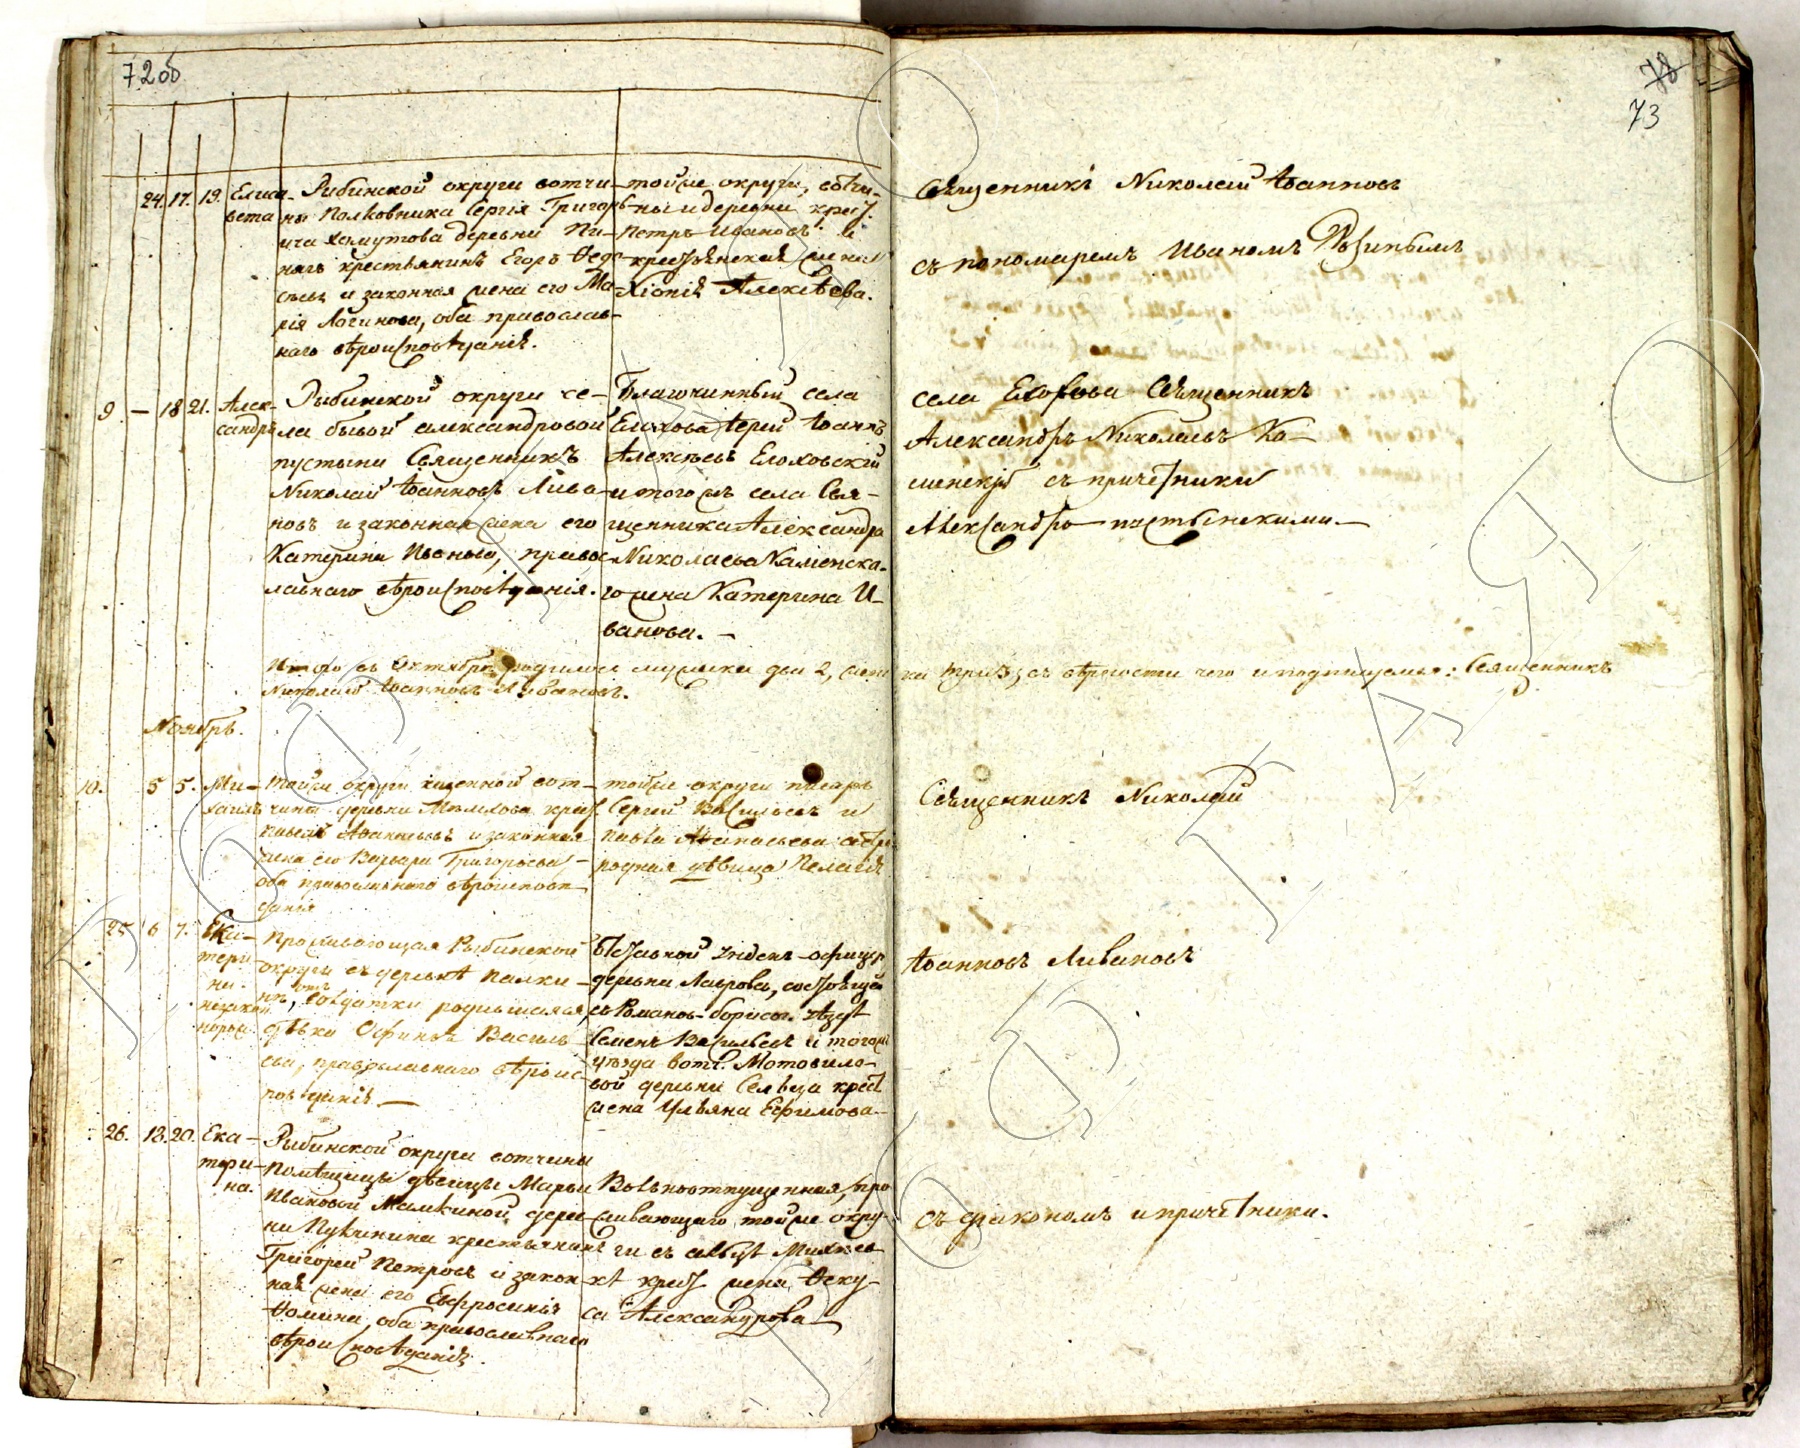 72 об
78
73
24. 17. 19. Елиса-
вета
Рыбинской округи вотчи-
ны Полковника Сергія Григорь-
ича Хомутова деревни Пи-
нягъ крестьянинъ Егоръ Ѳедо-
сѣевъ и законная жена его Ма-
рія Логинова, оба православ-
наго вѣроисповѣданія.
тойже округи, вотчи-
ны и деревни крест.
Петръ Ивановъ и
крестьянская жена
Хіонія Алексѣева.
Священникъ Николай Іоанновъ
съ пономаремъ Иваномъ
9 — 18 21. Алек-
сандръ
Рыбинской округи се-
ла бывой александровой
пустыни Священникъ
Николай Іоанновъ Лива-
новъ и законная жена его
Катерина Иванова, правос-
лавнаго вѣроисповѣданія.
Благочинный села
Елохова Іерей Іоаннъ
Алексѣевъ Елоховскій
и тогожъ села Свя-
щенника Александра
Николаева Каменска-
го жена Катерина И-
ванова. —
села Елохова Священникъ
Александръ Николаевъ Ка-
менскій съ причетники
Александро-пустынскими. —
Итого въ Октябрѣ родилось мужеска два 2, жен-
ска три 3, въ вѣрности чего и подписуемъ: Священникъ
Николай Іоанновъ Ливановъ.
Ноябрь.
10. 5 5. Ми-
хаилъ
тойже округи казенной вот-
чины деревни крест.
Аѳанасьевъ и законная
жена его Варвара Григорьева
оба православнаго вѣроиспов-
данія
тойже округи писарь
Сергей Васильевъ и
Павла Аѳанасьева
родная дѣвица Пелагія
Священникъ Николай
25 6 7. Ека-
тери-
на.
Проживающая Рыбинской
округи въ деревнѣ Палки-
нѣ, отъ солдатки родившаяся
дѣвки Офимьи Василь-
ева, православнаго вѣроис-
повѣданія. —
Отставной Унденъ-офицеръ
деревни Лаврова, состоящей
въ Романов-борисог. уѣздѣ
Семенъ Васильевъ и тогоже
уѣзда вотч. Мотовило-
вой деревни Селвца крест.
жена Ульяна Ефимова. —
Іоанновъ Ливановъ
26. 13. 20. Ека-
тери-
на.
Рыбинской округи вотчины
Помѣщицы дѣвицы Марьи
Ивановой дерев-
ни крестьянинъ
Григорей Петровъ и закон-
ная жена его Евфросинія
Ѳомина, оба православнаго
вѣроисповѣданія.
Вольноотпущенная, про-
живающаго тойже окру-
ги въ сельцѣ Михѣев-
кѣ крест. жена Ѳеку-
са Александрова
съ діакономъ и причетники.